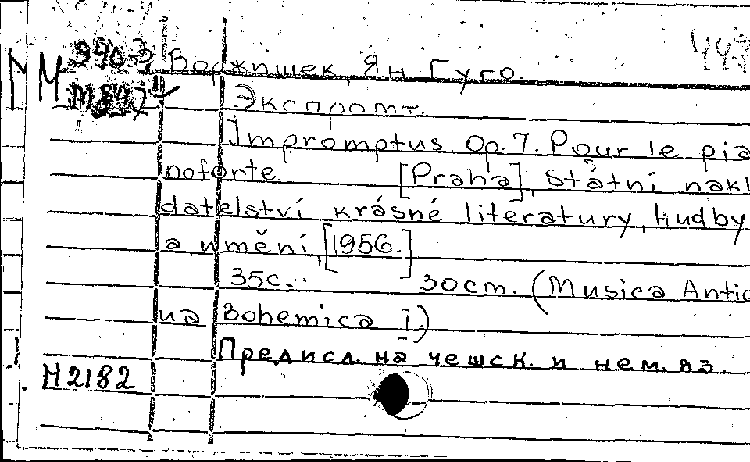 М Воржишек, Ян Гуго.
Экспромт.
Impromptus Op. 7. Pour le pia
noforte. [Praha], Státní nakl
datelství krásné literatury, hudby
a umění, [1956.]
35с. 30cm. (Musica Antic
ua Bohemica 1.)
Предисл. на чешск. и нем. яз.
Н2182